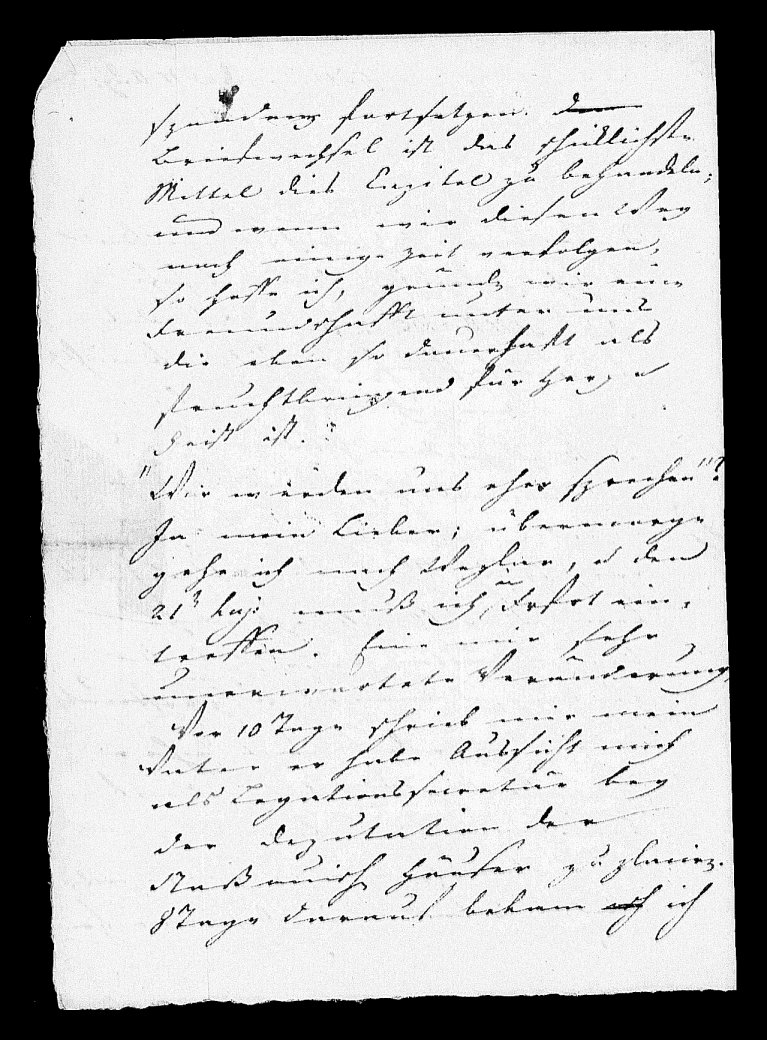 spondenz fortsetzen. D̶e̶r̶
Briefwechsel ist das schicklichste
Mittel dies Capitel zu behandeln;
und wenn wir diesen Weg
noch einige Zeit verfolgen,
so hoffe ich, gründen wir eine
Freundschafft unter uns
die eben so dauerhafft als
fruchtbringend für Herz u
Geist ist."
"Wir werden uns eher sprechen"?
Ja mein Lieber; übermorgen
gehe ich nach Wezlar, u den
21t huj: muß ich in Frfrt ein-
treffen. Eine mir sehr
unerwartete Veränderung.
Vor 10 Tage schrieb mir mein
Vater er habe Aussicht mich
als Legationssecretär bey
der Deputation der
Naßauisch Häuser zu placiren.
8 Tage darauf bekam ich